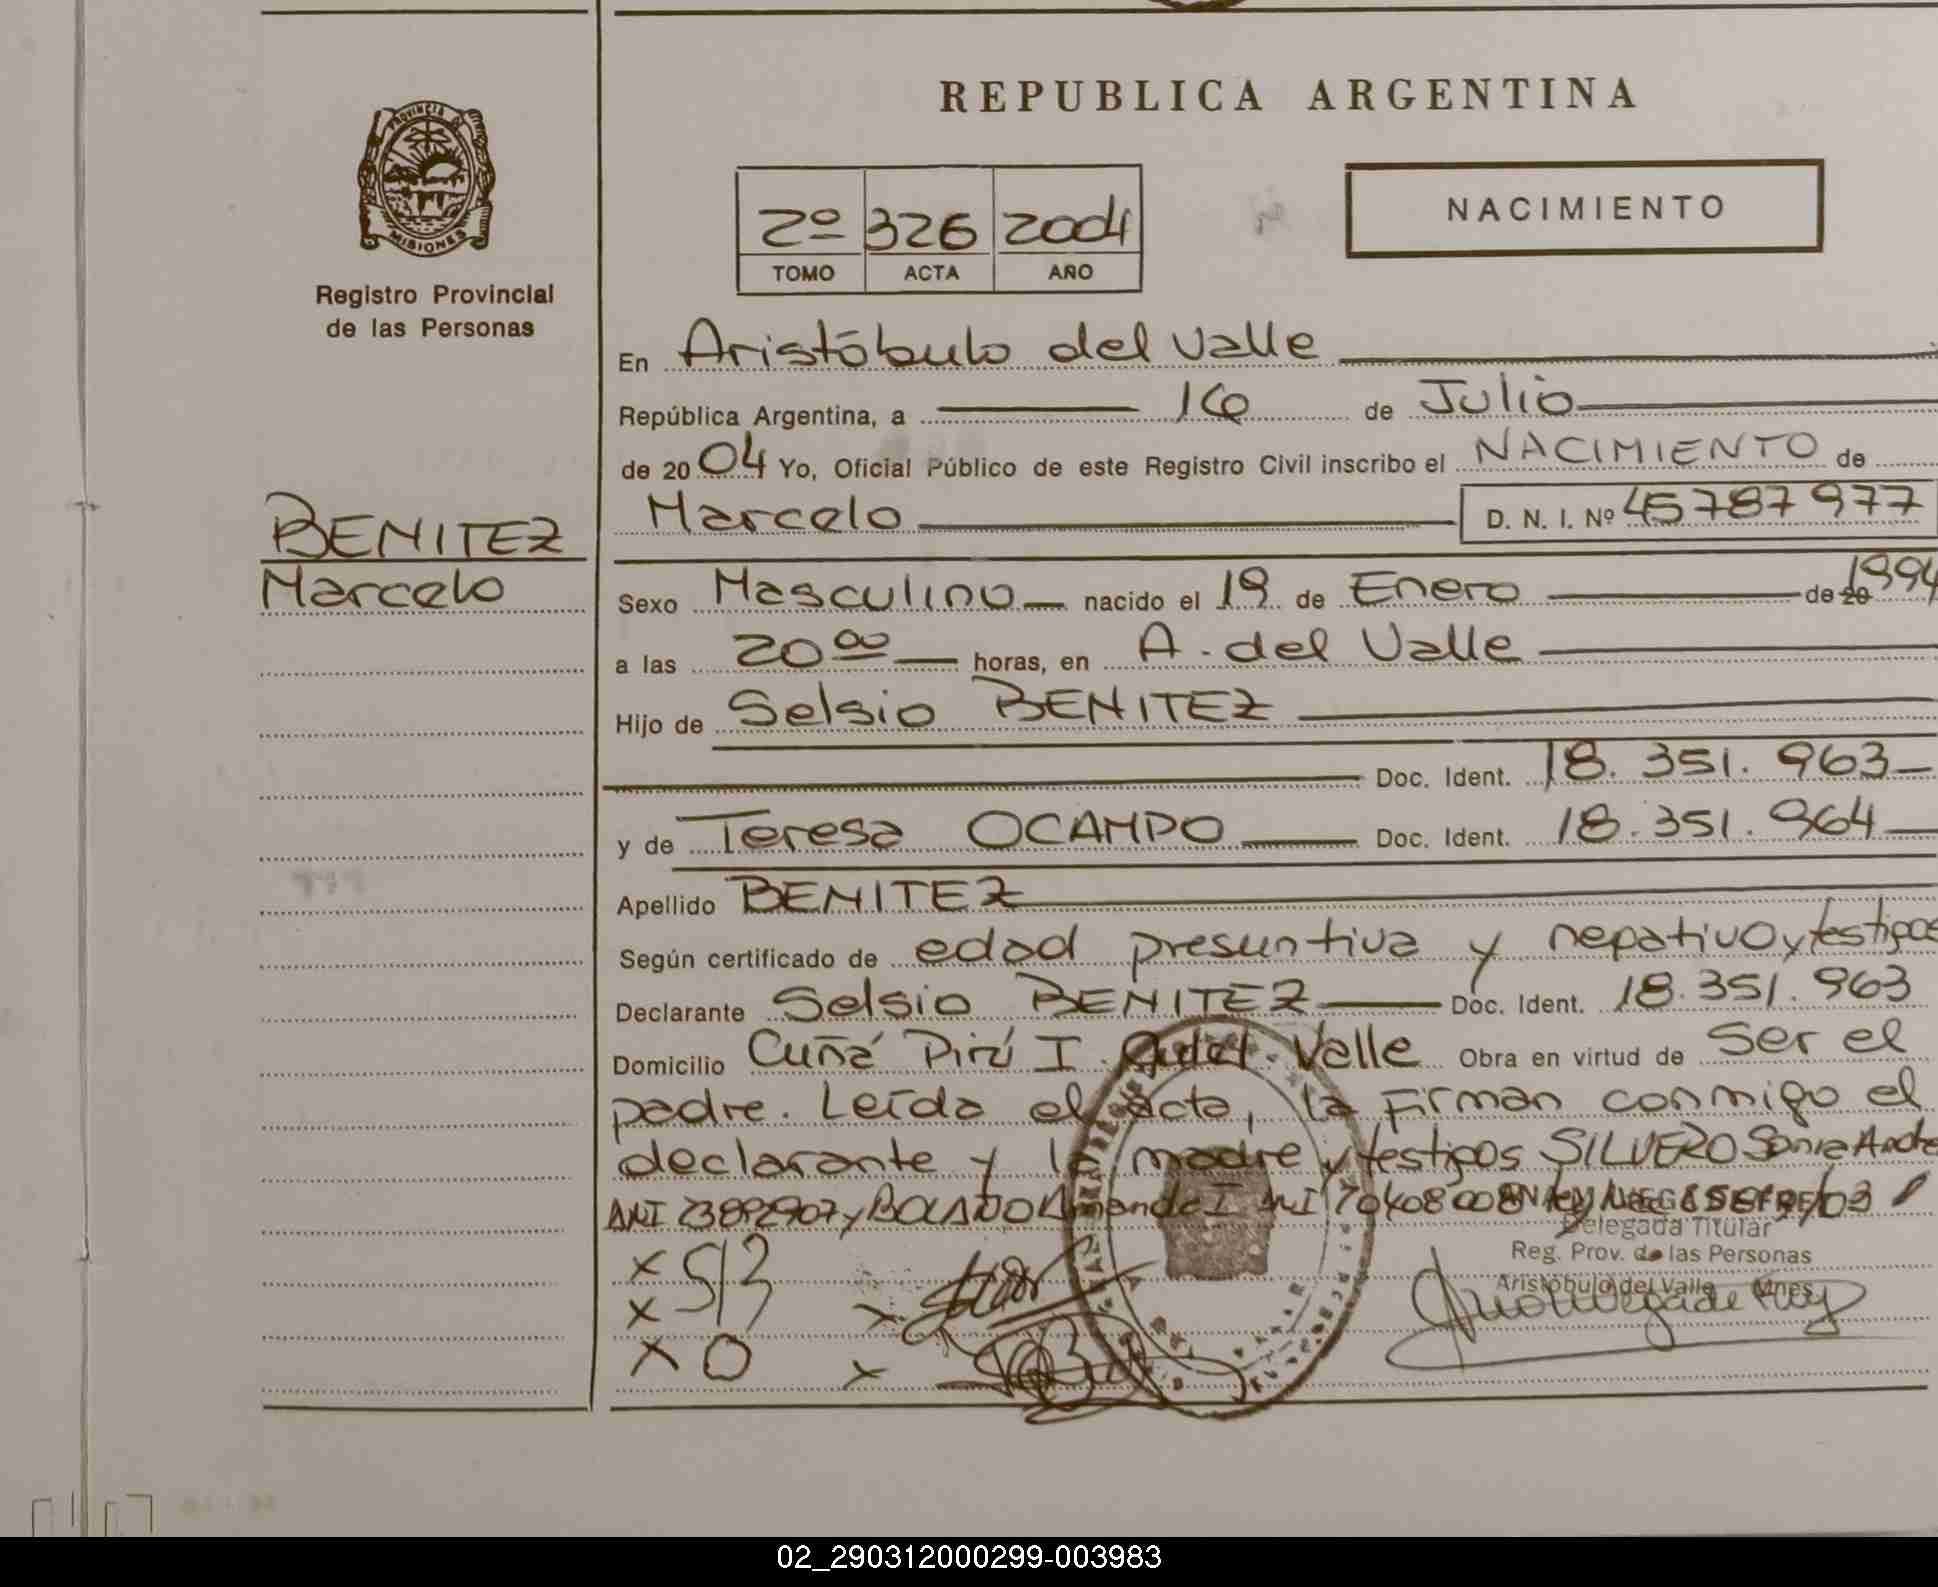 REPUBLICA ARGENTINA
PROVINCIA DE
MISIONES
Registro Provincial
de las Personas
2º 326 2004
TOMO ACTA AÑO
NACIMIENTO
En Aristóbulo del Valle
República Argentina, a 16 de Julio
de 2004 Yo, Oficial Público de este Registro Civil inscribo el NACIMIENTO de
BENITEZ
Marcelo
Marcelo D. N. I. Nº 45787977
Sexo Masculino nacido el 19 de Enero de 20 1994
a las 20 00 horas, en A. del Valle
Hijo de Selsio BENITEZ
Doc. Ident. 18.351.963
y de Teresa OCAMPO Doc. Ident. 18.351.964
Apellido BENITEZ
Según certificado de edad presuntiva y negativo y testigos
Declarante Selsio BENITEZ Doc. Ident. 18.351.963
Domicilio Cuñá Pirú I A. del Valle Obra en virtud de ser el
padre. Leída el acta, la firman conmigo el
declarante y la madre y testigos SILVERO Sonia
DNI y
Delegada Titular
Reg. Prov. de las Personas
Aristóbulo del Valle Mnes.
x
x
x O x
02_290312000299-003983